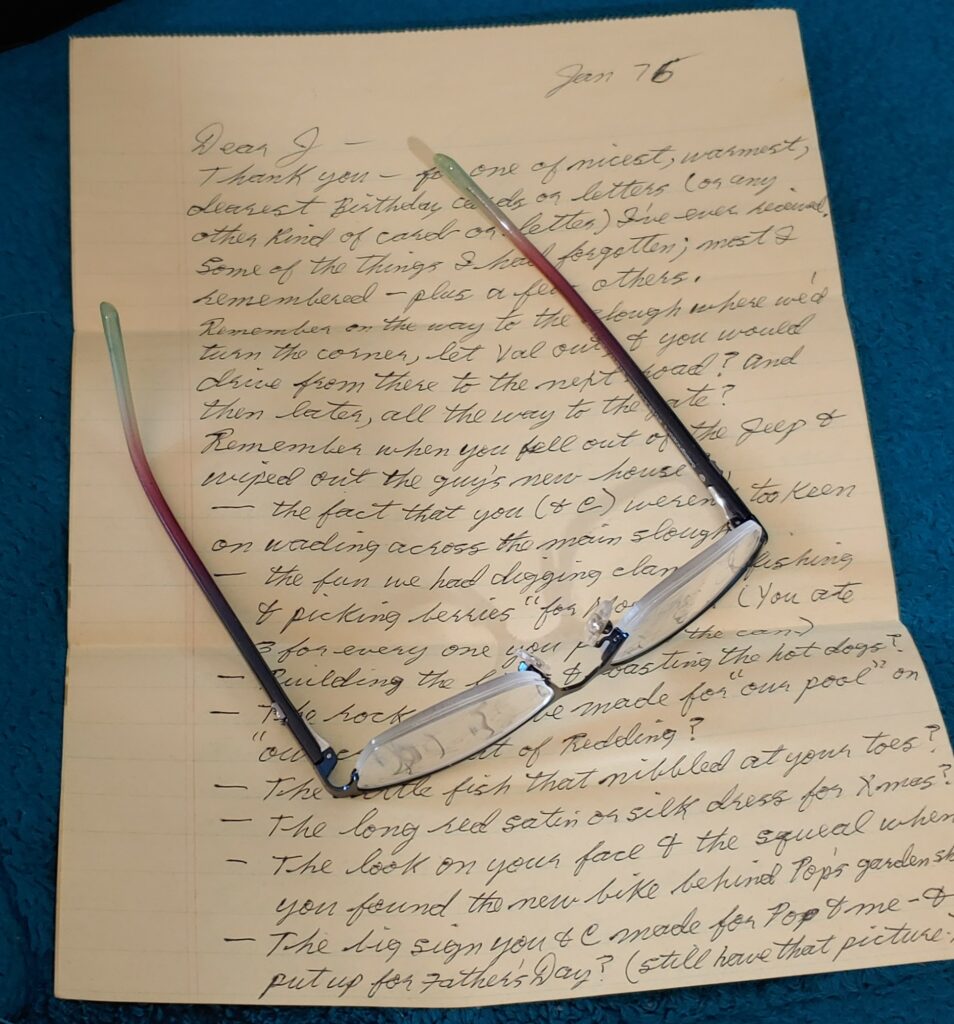 Jan 76
Dear J —
Thank you — for one of nicest, warmest,
dearest Birthday cards or letters (or any
other kind of card or letter) I've ever received.
Some of the things I had forgotten; most I
remembered — plus a few others.
Remember on the way to the slough where we'd
turn the corner, let Val out, & you would
drive from there to the next road? And
then later, all the way to the gate?
Remember when you fell out of the Jeep &
wiped out the guy's new house
— the fact that you (& C) weren't too keen
on wading across the main slough
— the fun we had digging clams, fishing
& picking berries "for (You ate
3 for every one you the can)
— Building the & roasting the hot dogs?
— The rock we made for "our pool" on
"our of Redding?
— The little fish that nibbled at your toes?
— The long red satin or silk dress for Xmas?
— The look on your face & the squeal when
you found the new bike behind Pop's garden
— The big sign you & C made for Pop & me - &
put up for Father's Day? (still have that picture.)